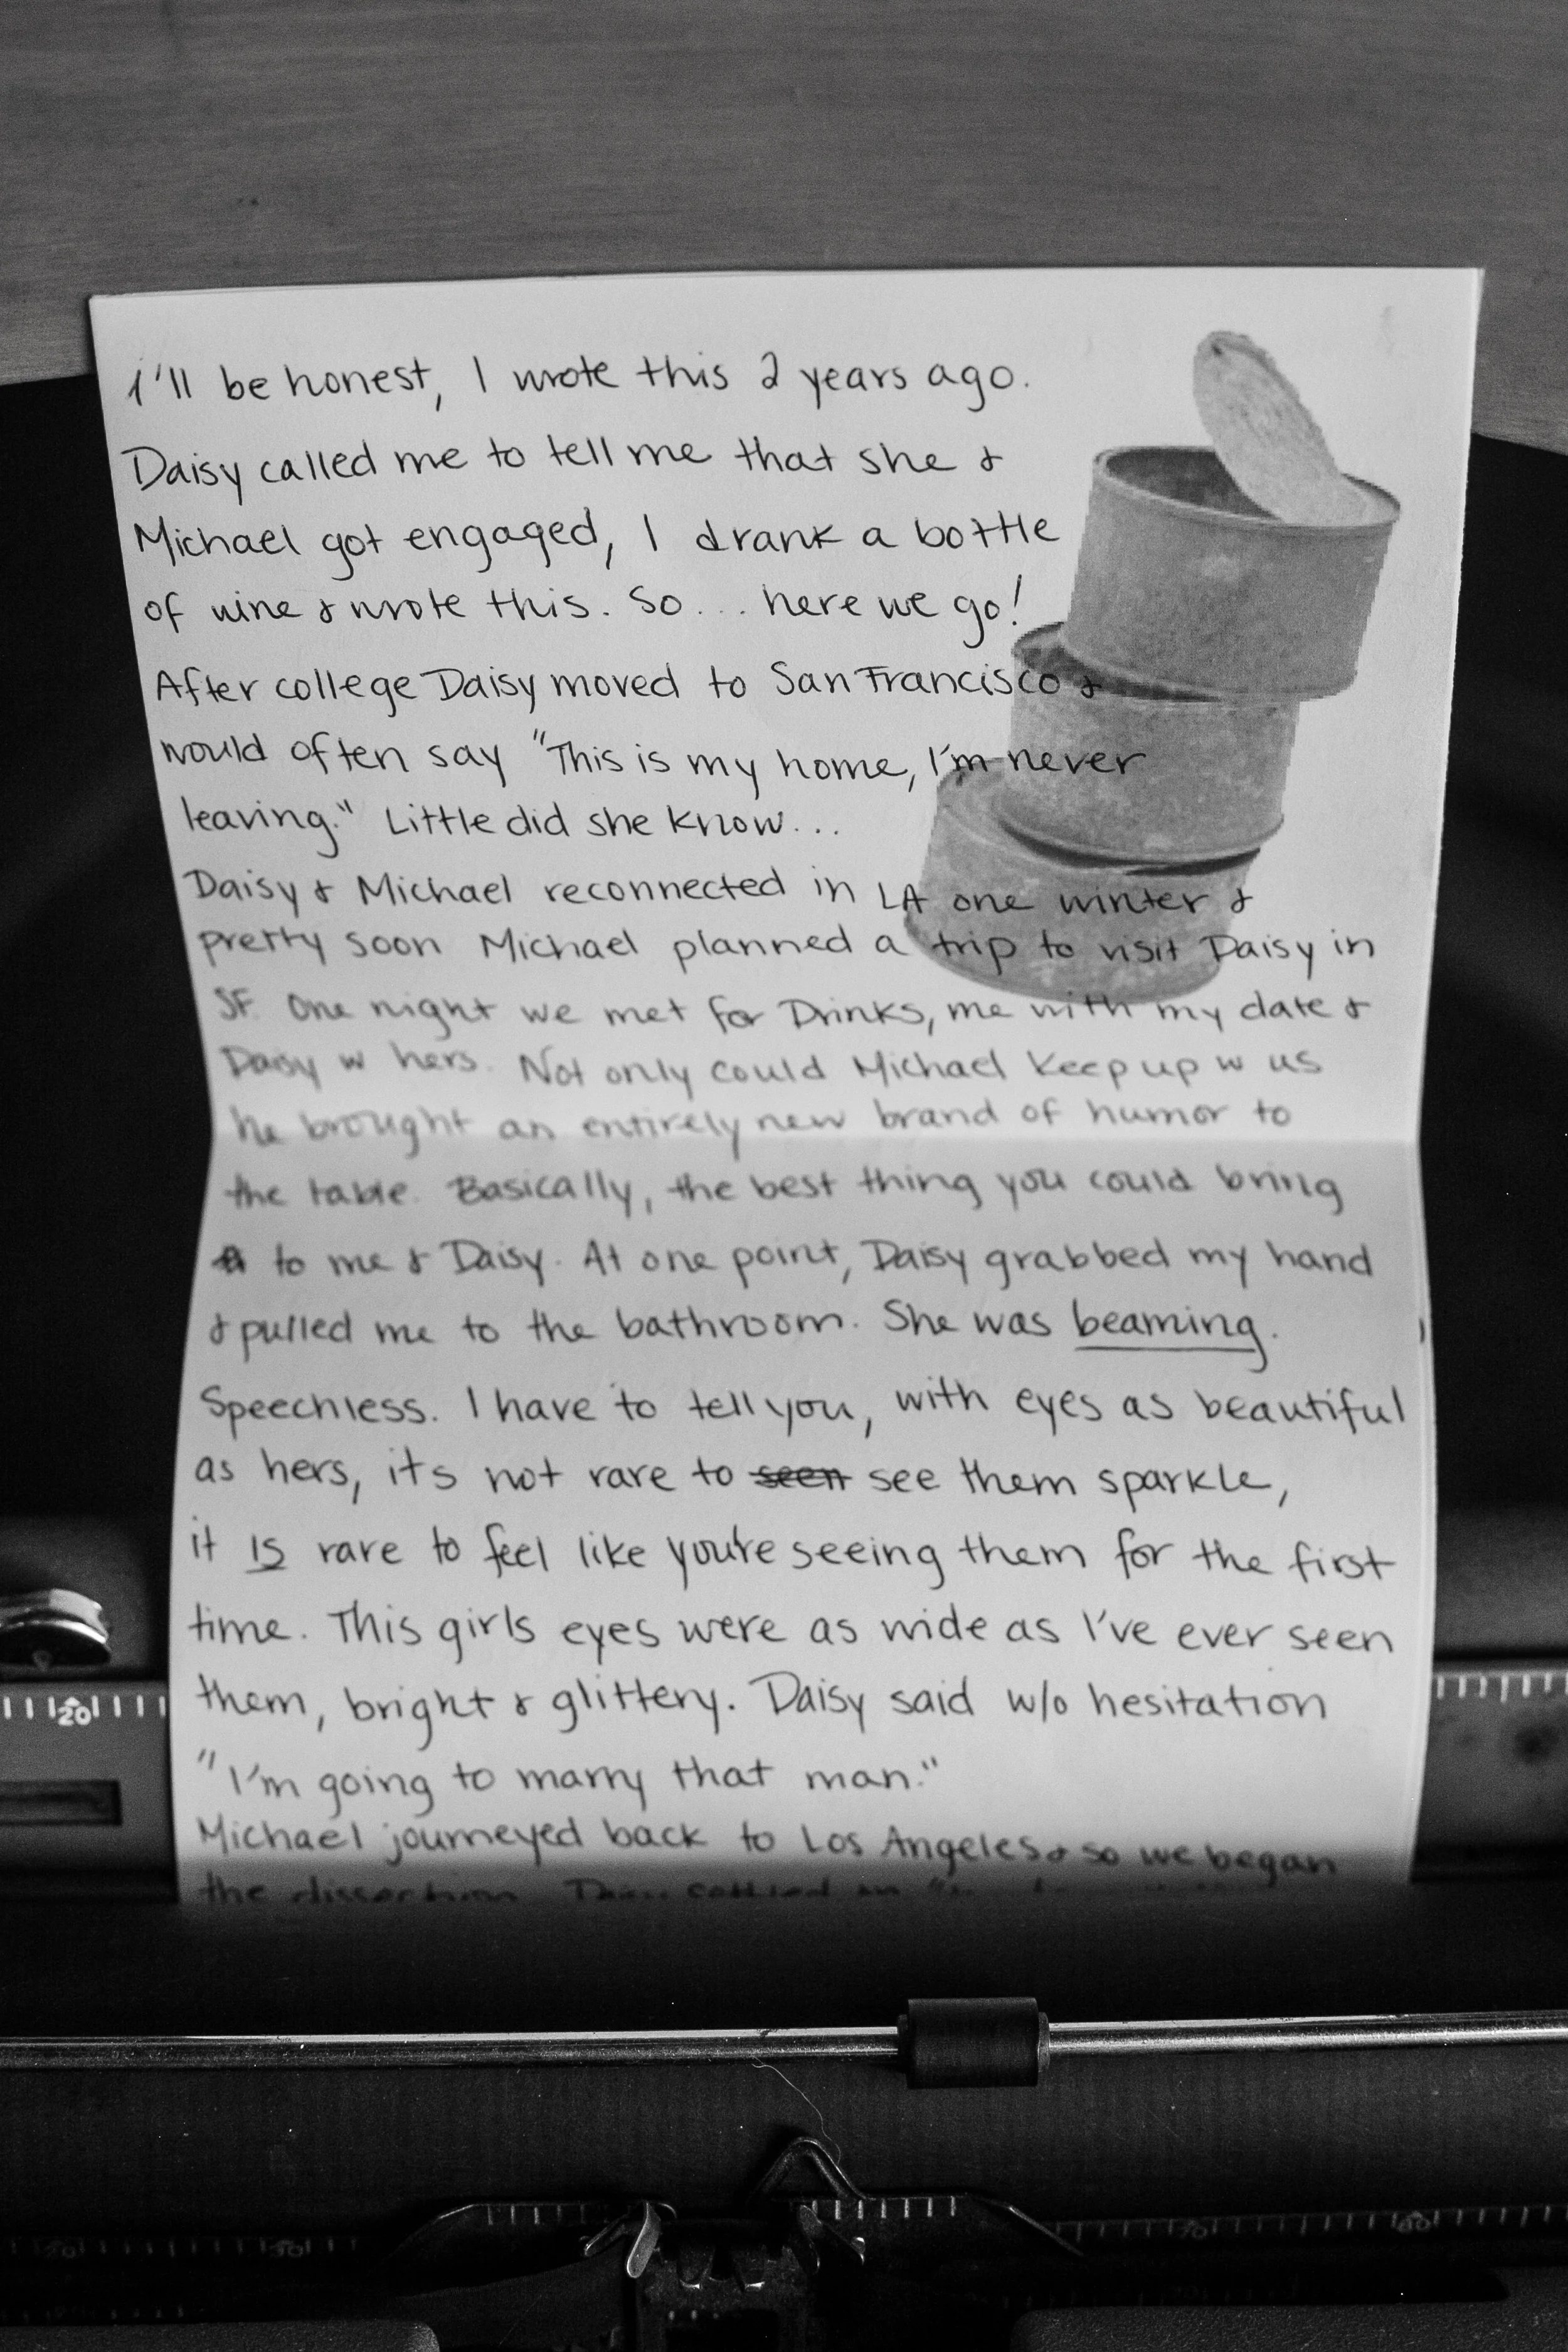 I'll be honest, I wrote this 2 years ago.
Daisy called me to tell me that she &
Michael got engaged, I drank a bottle
of wine & wrote this. So... here we go!
After college Daisy moved to San Francisco &
would often say "This is my home, I'm never
leaving." Little did she know...
Daisy & Michael reconnected in LA one winter &
pretty soon Michael planned a trip to visit Daisy in
SF. One night we met for Drinks, me with my date &
Daisy w hers. Not only could Michael keep up w us
he brought an entirely new brand of humor to
the table. Basically, the best thing you could bring
to me & Daisy. At one point, Daisy grabbed my hand
& pulled me to the bathroom. She was beaming.
Speechless. I have to tell you, with eyes as beautiful
as hers, its not rare to seen see them sparkle,
it IS rare to feel like you're seeing them for the first
time. This girls eyes were as wide as I've ever seen
them, bright & glittery. Daisy said w/o hesitation
"I'm going to marry that man."
Michael journeyed back to Los Angeles & so we began
the dissection.
20